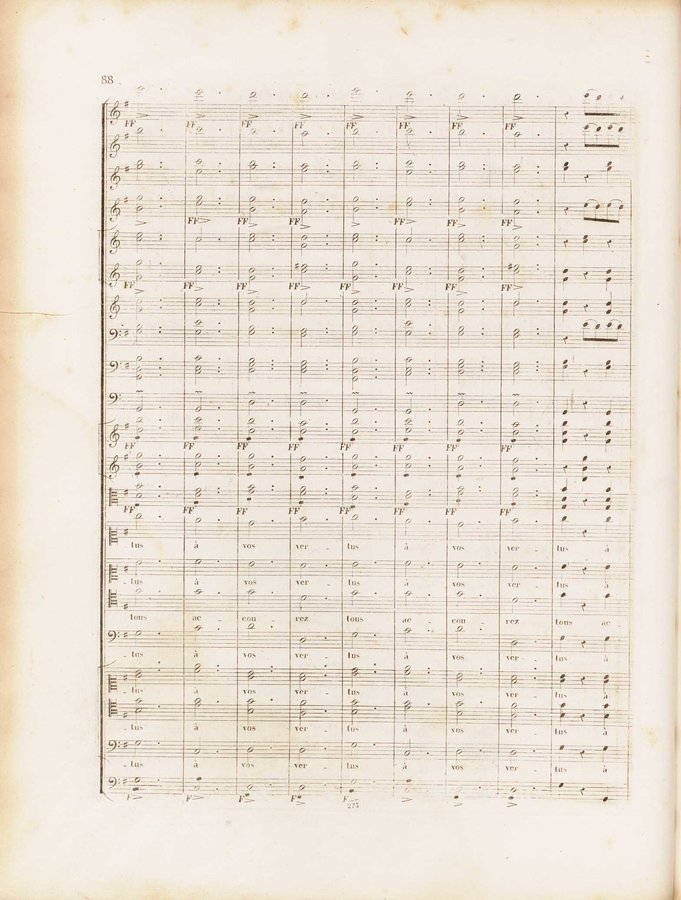 88
FF FF FF FF FF FF FF FF
FF FF FF FF FF FF FF
FF FF FF FF FF FF FF FF
FF FF FF FF FF FF FF FF
FF FF FF FF FF
tus à vos ver - tus à vos ver - tus à
- tus à vos ver - tus à vos ver - tus à
tous ac - cou - rez tous ac - cou - rez tous ac -
- tus à vos ver - tus à vos ver - tus à
- tus à vos ver - tus à vos ver - tus à
tus à vos ver - tus à vos ver - tus à
- tus à vos ver - tus à vos ver - tus à
F F F F F
275